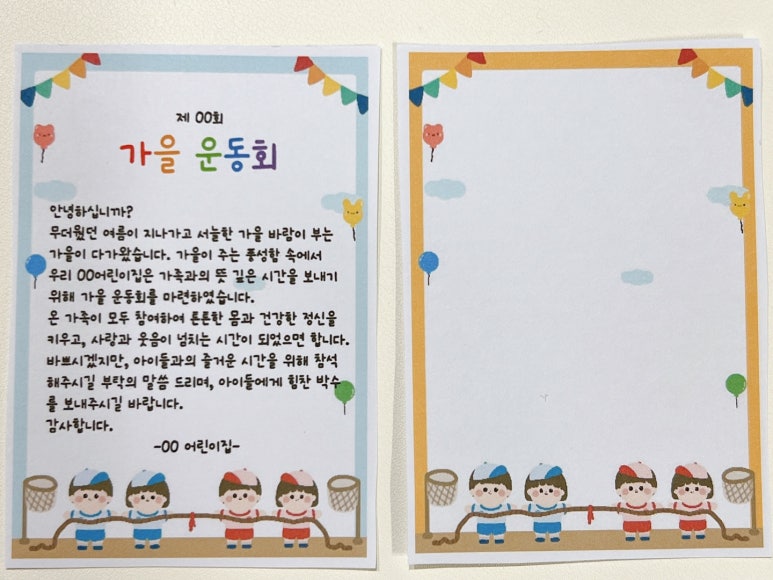 제 00회
가을 운동회
안녕하십니까?
무더웠던 여름이 지나가고 서늘한 가을 바람이 부는
가을이 다가왔습니다. 가을이 주는 풍성함 속에서
우리 00어린이집은 가족과의 뜻 깊은 시간을 보내기
위해 가을 운동회를 마련하였습니다.
온 가족이 모두 참여하여 튼튼한 몸과 건강한 정신을
키우고, 사랑과 웃음이 넘치는 시간이 되었으면 합니다.
바쁘시겠지만, 아이들과의 즐거운 시간을 위해 참석
해주시길 부탁의 말씀 드리며, 아이들에게 힘찬 박수
를 보내주시길 바랍니다.
감사합니다.
-00 어린이집-